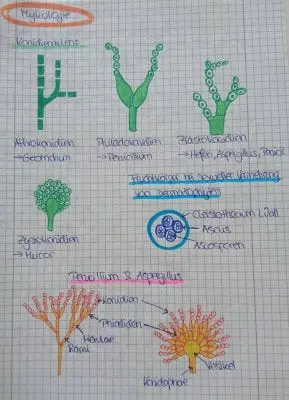 Mykologie
Konidienarten
Arthrokonidien
→ Geotrichum
Phialokonidien
→ Penicillium
Blastokonidien
→ Hefen, Aspergillus, Penicil
Fruchtkörper bei sexueller Vermehrung
von Dermatophyten
Cleistothecium Wall
Ascus
Ascosporen
→ Mucor
Penicillium & Aspergillus
Konidien
Phialiden
Metulae
Rami
Vesikel
Konidiophore